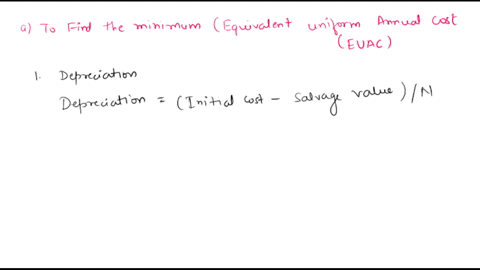 a) To Find the minimum (Equivalent uniform Annual cost
(EUAC)
1. Depreciation
Depreciation = (Initial cost - Salvage value) / N